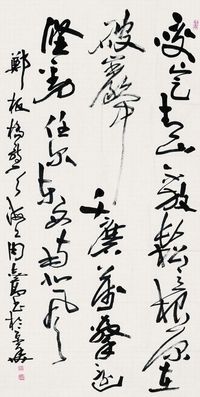 咬定青山不放鬆立根原在
破巖中千磨萬擊還
堅勁任尔東西南北風
鄭板橋